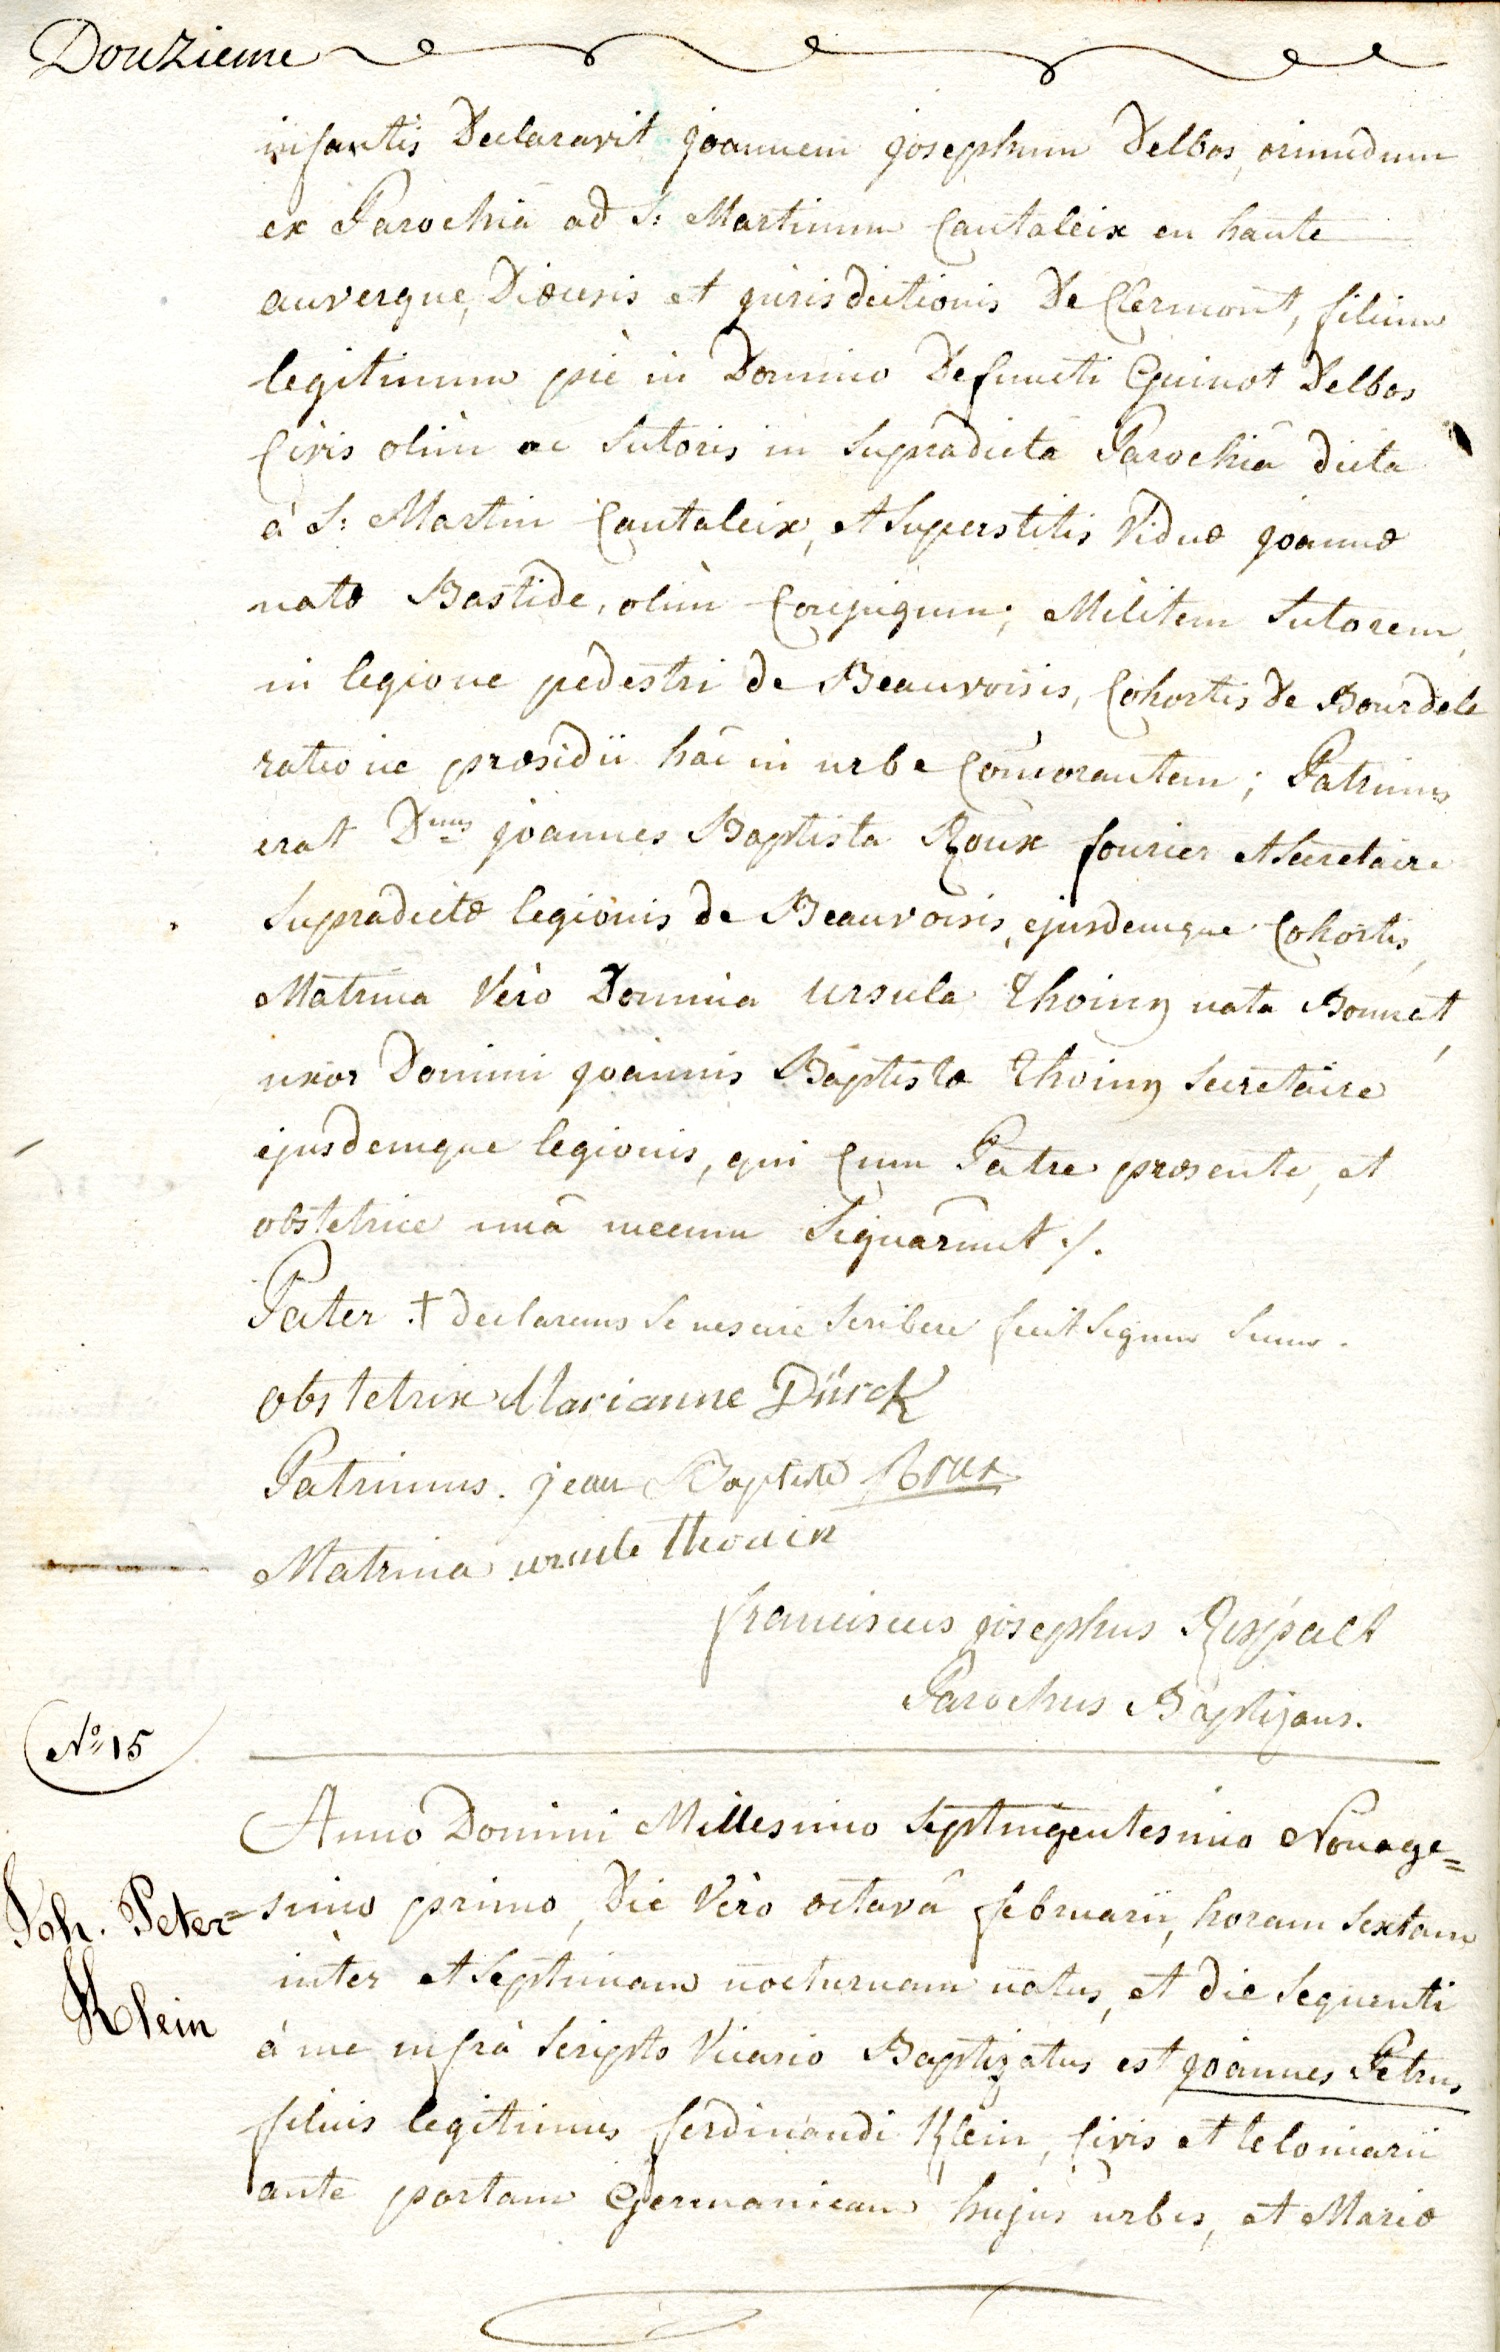 Douzieme
infantis Declaravit joannem josephum Delbos, oriundum
ex Parochiâ ad S: Martinum Cantaleix en haute
auvergne, Dioecesis et jurisdictionis De Clermont, filium
legitimum piè in Domino Defuncti Guinot Delbos
Civis olim ac Sutoris in Supradicta Parochiâ dicta
à S: Martin Cantaleix, et Superstitis Viduæ joannæ
natæ Bastide, olim Conjugum; Militem Sutorem,
in legione pedestri de Beauvoisis, Cohortis de Bourdele
ratione præsidii hâc in urbe Com̃orantem; Patrinus
erat Dnus joannes Baptista Roux fourier et Secretaire
Supradictæ legionis de Beauvoisis, ejusdemque Cohortis,
Matrina Vèro Domina Ursula Thoiny nata Bonnet,
uxor Domini joannis Baptistæ Thoiny Secretaire
ejusdemque legionis, qui Cum Patre præsente, et
obstetrice unâ mecum Signârunt ./.
Pater . † declarans Se nescire Scribere fecit Signum Suum .
obstetrix Marianne Dürck
Patrinus . jean Baptiste Roux
Matrina ursule thouin
franciscus josephus Rispalt
Parochus Baptizans.
No 15
Anno Domini Millesimo Septingentesimo Nonage=
Joh. Peter=
simo primo, Die Vèro octavâ februarii, horam Sextam
Klein
inter et Septimam nocturnam natus, et die Sequenti
à me infrà Scripto Vicario Baptizatus est joannes Petrus
filius legitimus ferdinandi Klein, Civis et teloniarii
ante portam Germanicam hujus urbis, et Mariæ